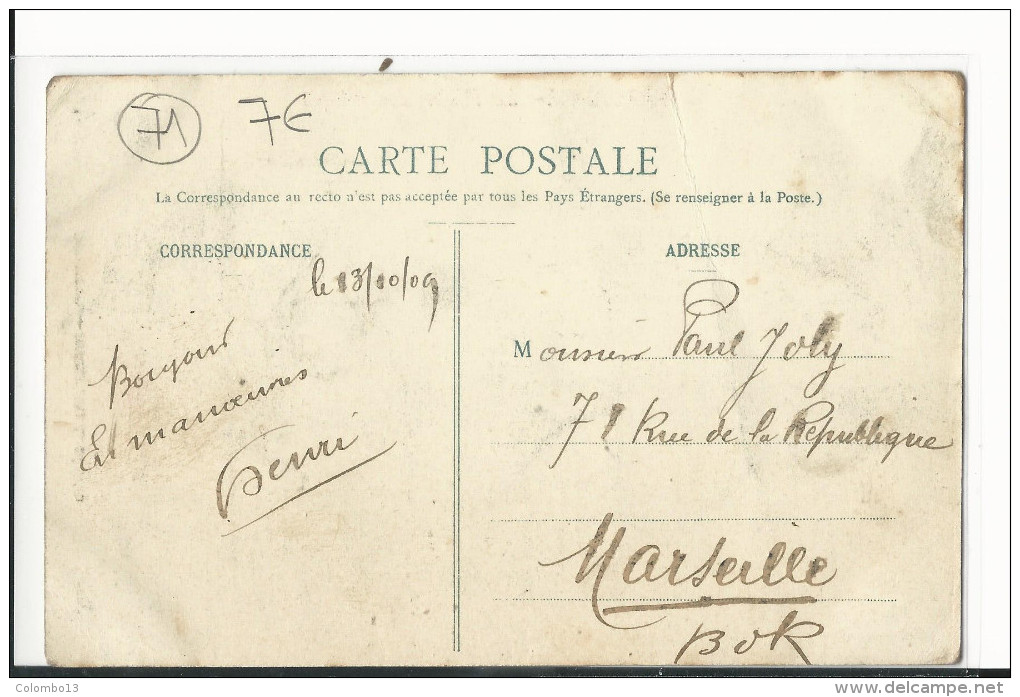 71 7€
CARTE POSTALE
La Correspondance au recto n'est pas acceptée par tous les Pays Étrangers. (Se renseigner à la Poste.)
CORRESPONDANCE
le 13/10/09
Bonjour
En manœuvres
Henri
ADRESSE
Monsieur Paul Joly
71 Rue de la République
Marseille
BdR
Colombo13
delcampe.net